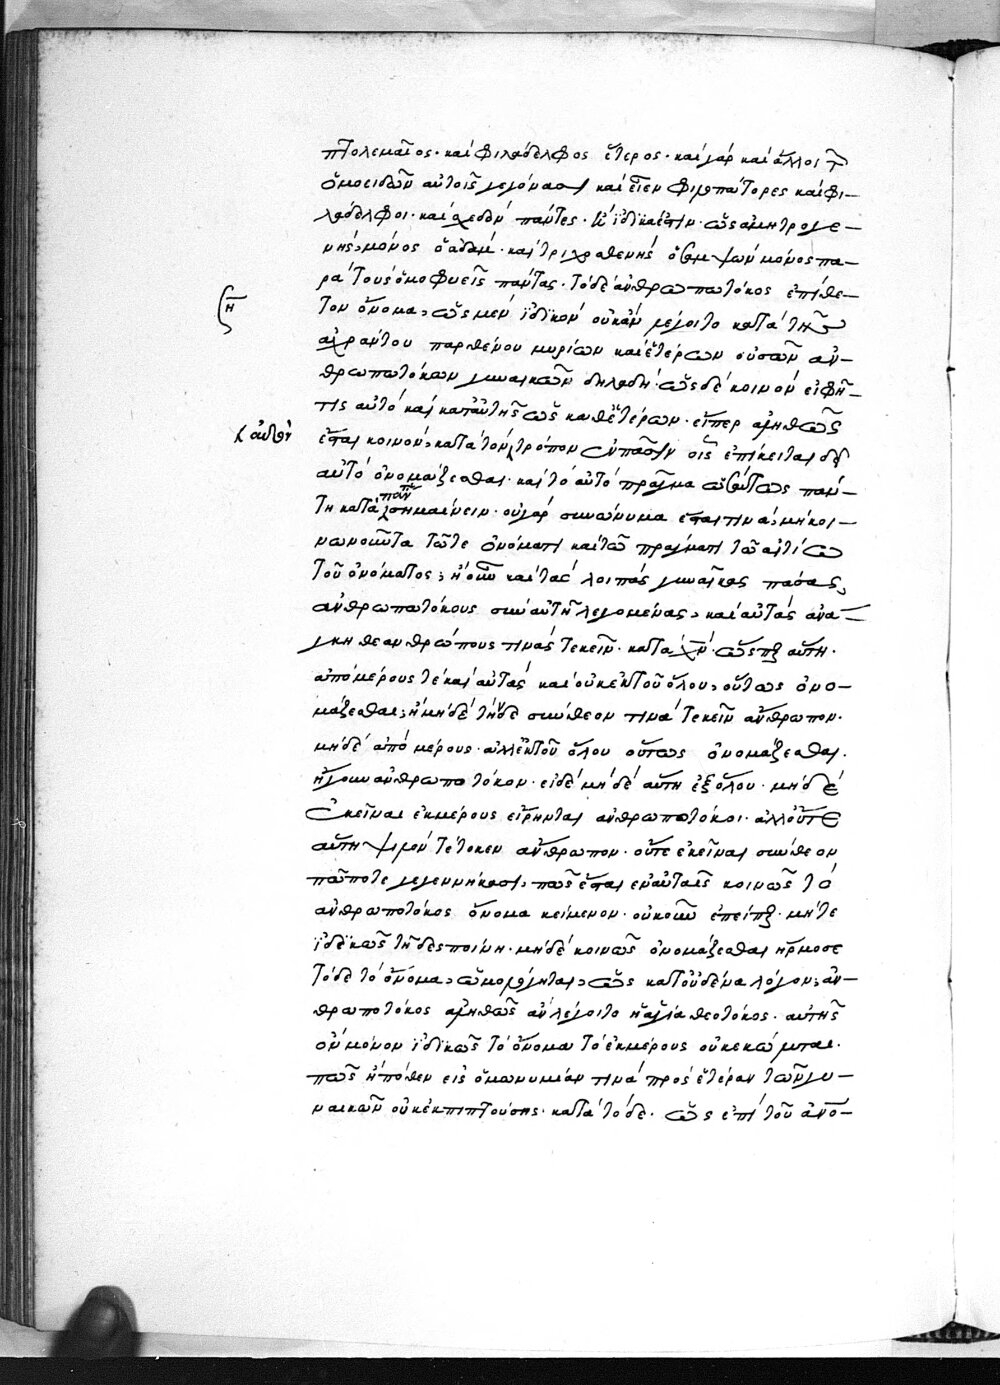 πτολεμαῖος· καὶ φιλάδελφος ἕτερος· καὶ γὰρ καὶ ἄλλοι
ὁμοειδῶν αὐτοῖς γεγόνασι καὶ εἶεν φιλοπάτορες καὶ φι-
λάδελφοι· καὶ σχεδὸν πάντες· ἰδϊκά ἐστιν· ὡς ἀμητρογε-
νὴς μόνος ὁ ἀδὰμ· καὶ τριχοθενὴς ὁ μόνος πα-
ρὰ τοὺς ὁμοφυεῖς πάντας· τὸ δὲ ἀνθρωποτόκος ἐπίθε-
τον ὄνομα, ὡς μὲν ἰδϊκὸν οὐκ ἂν λέγοιτο κατὰ τῆς
ἀχράντου παρθένου μυρίων καὶ ἑτέρων οὐσῶν ἀν-
θρωποτόκων γυναικῶν δηλαδή· ὡς δὲ κοινὸν εἰ φῄ-
τις αὐτὸ καὶ κατ' αὐτῆς ὡς καθ' ἑτέρων· εἴπερ ἀληθῶς
ἔσται κοινόν, κατὰ τὸν τρόπον ἐν πᾶσιν οἷς ἐπίκειται δεῖ
αὐτὸ ὀνομάζεσθαι· καὶ τὸ αὐτὸ πρᾶγμα ὡσαύτως πάν-
τη κατὰ πάντων σημαίνειν· οὐ γὰρ συνώνυμα ἔσται τινὰ, μὴ κοι-
νωνοῦντα τῶτε ὀνόματι καὶ τῶ πράγματι τῶ αἰτίω
τοῦ ὀνόματος; ἢ οὖν καὶ τὰς λοιπὰς γυναῖκας πάσας,
ἀνθρωποτόκους σὺν αὐτῆ λεγομένας, καὶ αὐτὰς ἀνά-
γκη θεανθρώπους τινὰς τεκεῖν· κατὰ χν· ὥσπερ αὕτη·
ἀπὸ μέρους τὲ καὶ αὐτὰς καὶ οὐκ ἐκ τοῦ ὅλου, οὕτως ὀνο-
μάζεσθαι; ἢ μηδὲ τήνδε σύνθεον τινὰ τεκεῖν ἄνθρωπον·
μηδὲ ἀπὸ μέρους· ἀλλ' ἐκ τοῦ ὅλου οὕτως ὀνομάζεσθαι·
ἤγουν ἀνθρωποτόκον· εἰ δὲ μηδὲ αὕτη ἐξ ὅλου· μηδὲ
ἐκεῖναι ἐκ μέρους εἴρηνται ἀνθρωποτόκοι· ἀλλ' οὔτε
αὕτη ψιλὸν τέτοκεν ἄνθρωπον· οὔτε ἐκεῖναι σύνθεον
πώποτε γεγεννήκασι, πῶς ἔσται ἐν αὐταῖς κοινῶς τὸ
ἀνθρωποτόκος ὄνομα κείμενον· οὐκοῦν ἐπείπερ· μήτε
ἰδϊκῶς τῆ δεσποίνη· μηδὲ κοινῶς ὀνομάζεσθαι ἥρμοσε
τόδε τὸ ὄνομα, ὡμολόγηται, ὡς κατ' οὐδένα λόγον, ἀν-
θρωποτόκος ἀληθῶς ἂν λέγοιτο ἡ ἁγία θεοτόκος· αὐτῆς
οὐ μόνον ἰδϊκῶς τὸ ὄνομα τὸ ἐκ μέρους οὐ κεκώλυται·
πῶς ἢ πόθεν εἰς ὁμωνυμίαν τινὰ πρὸς ἑτέραν τῶν γυ-
ναικῶν οὐκ ἐκπιπτούσης· κατὰ τόδε· ὡς ἐπὶ τοῦ ἀνθ-